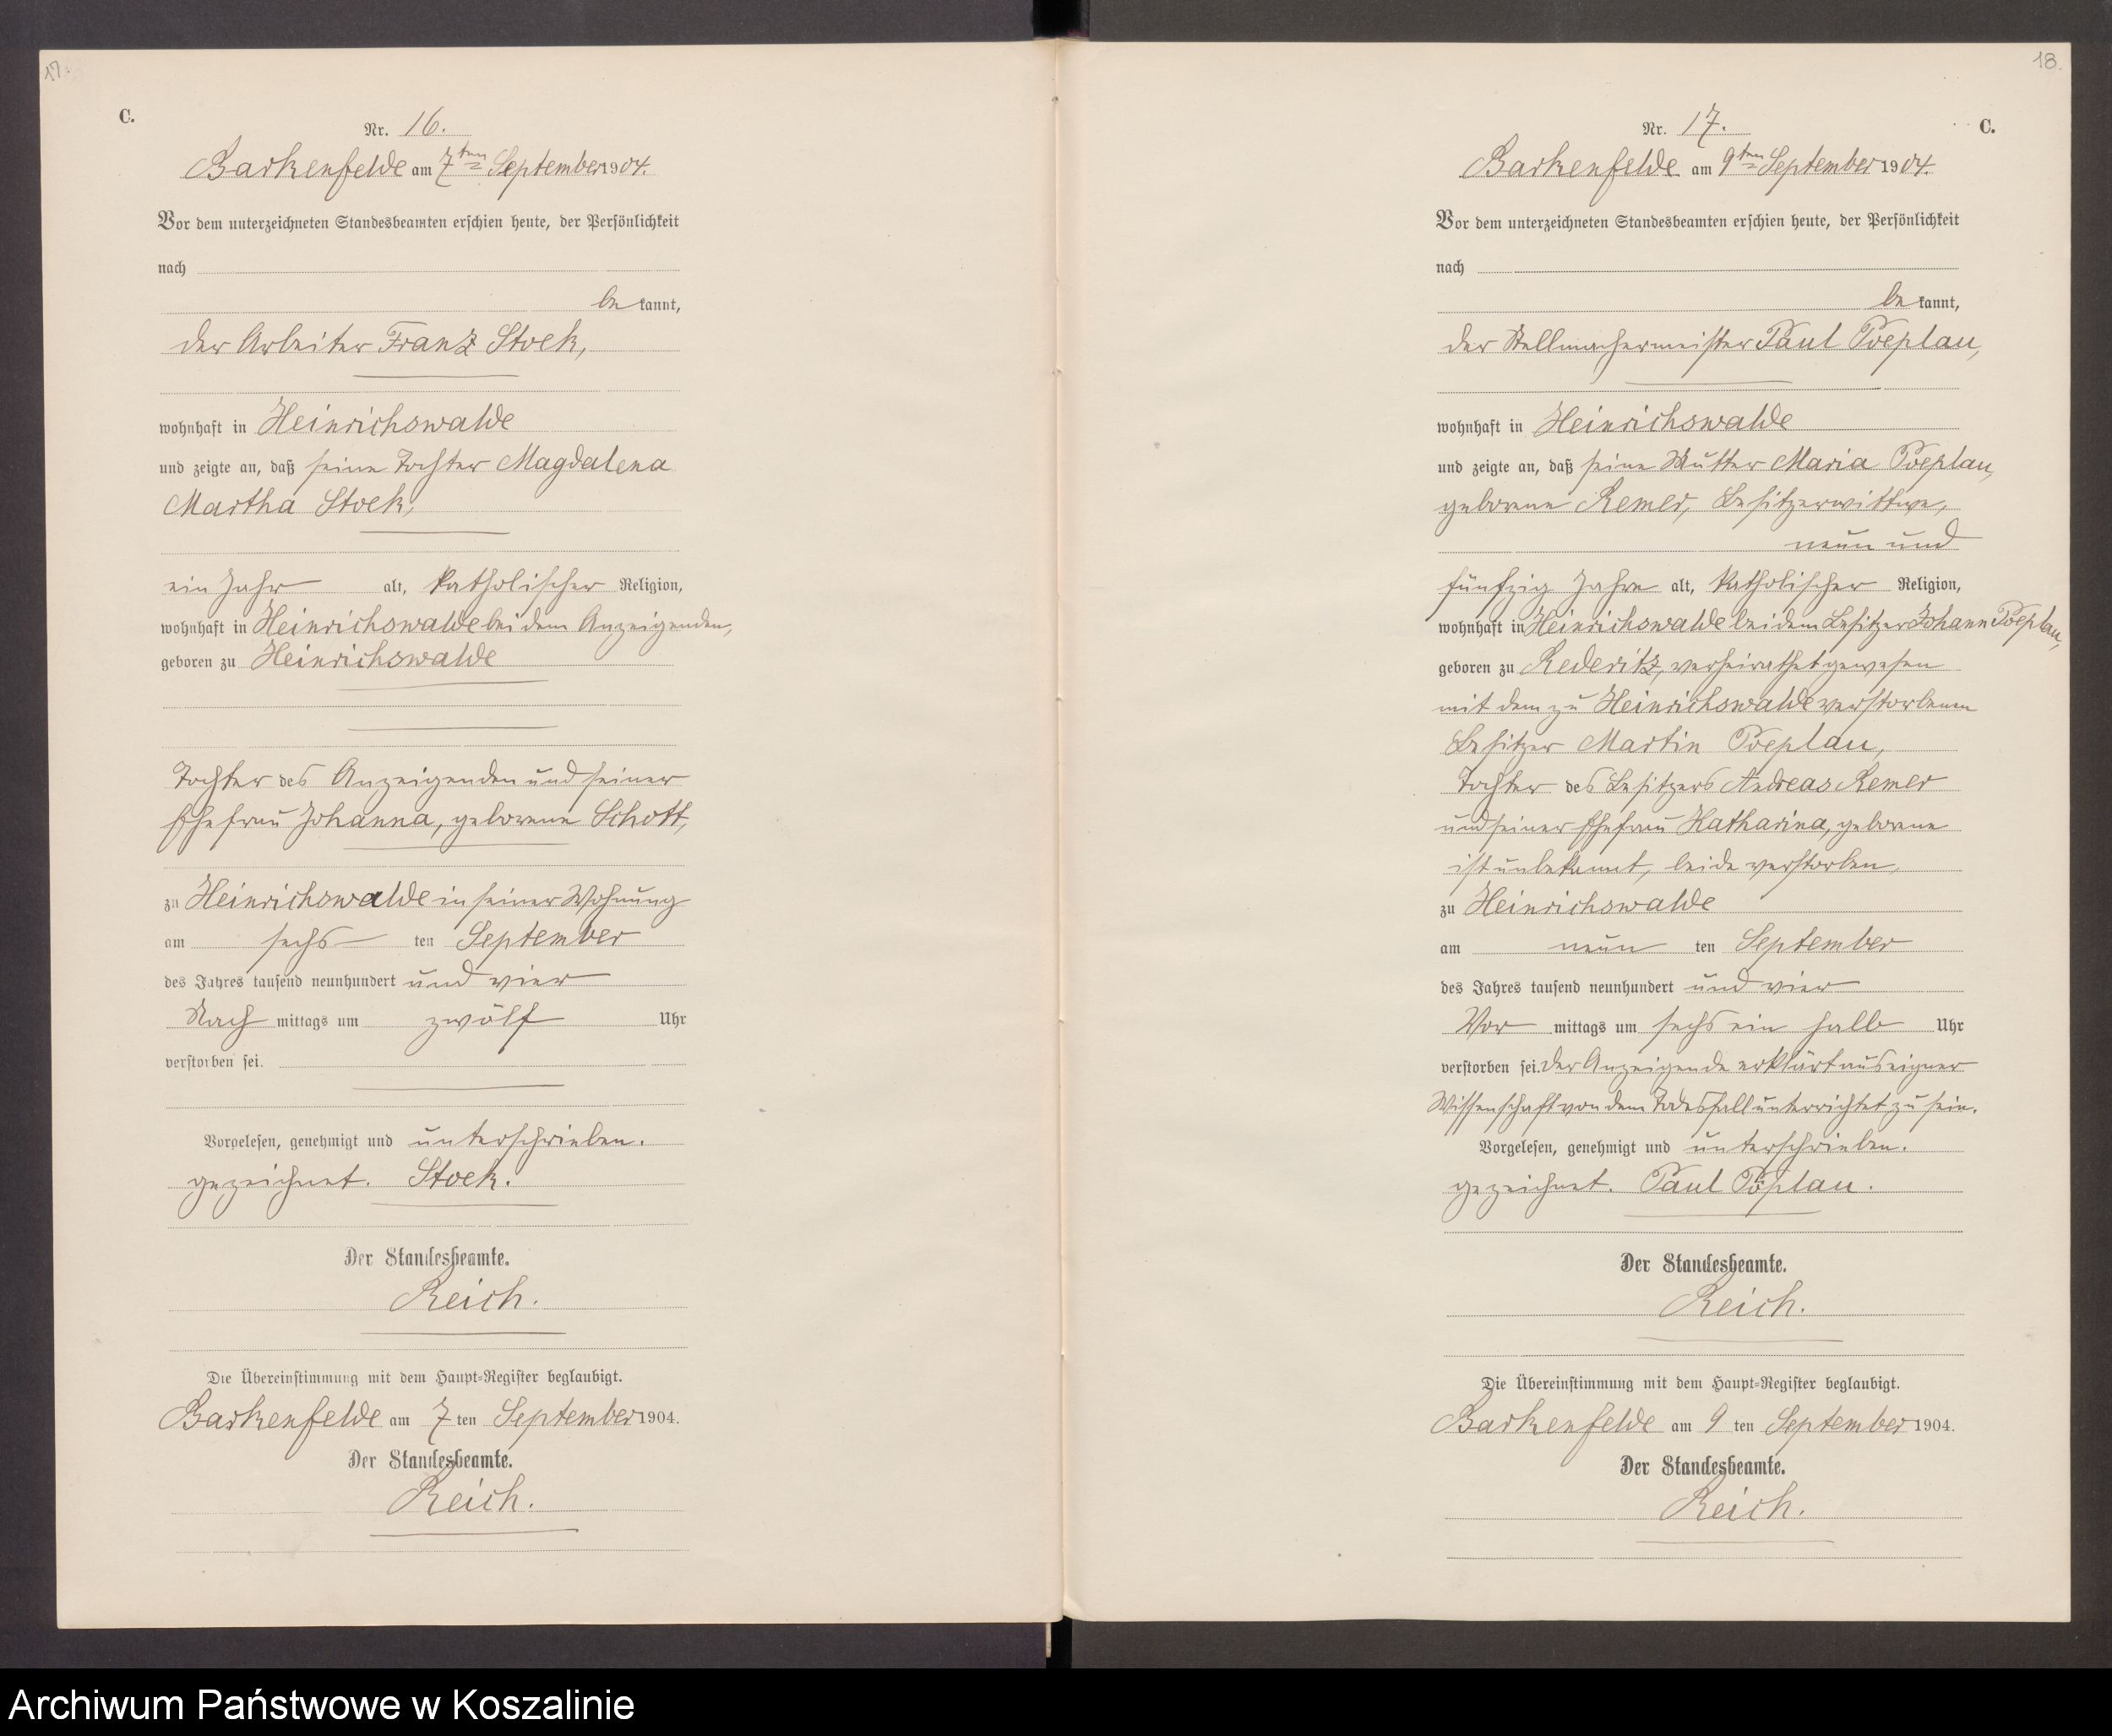 17.
C.
Nr. 16.
Barkenfelde am 7ten September 1904.
Vor dem unterzeichneten Standesbeamten erschien heute, der Persönlichkeit
nach
be kannt,
der Arbeiter Franz Stoek,
wohnhaft in Heinrichswalde
und zeigte an, daß seine Tochter Magdalena
Martha Stoek,
ein Jahr alt, katholischer Religion,
wohnhaft in Heinrichswalde bei dem Anzeigenden,
geboren zu Heinrichswalde
Tochter des Anzeigenden und seiner
Ehefrau Johanna, geborene Schott,
zu Heinrichswalde in seiner Wohnung
am sechs ten September
des Jahres tausend neunhundert und vier
Nach mittags um zwölf Uhr
verstorben sei.
Vorgelesen, genehmigt und unterschrieben.
gezeichnet. Stoek.
Der Standesbeamte.
Reich.
Die Übereinstimmung mit dem Haupt-Register beglaubigt.
Barkenfelde am 7 ten September 1904.
Der Standesbeamte.
Reich.
18.
C.
Nr. 17.
Barkenfelde am 9ten September 1904.
Vor dem unterzeichneten Standesbeamten erschien heute, der Persönlichkeit
nach
be kannt,
der Stellmachermeister Paul Poeplau,
wohnhaft in Heinrichswalde
und zeigte an, daß seine Mutter Maria Poeplau,
geborene Remer, Besitzerwittwe,
neun und
fünfzig Jahre alt, katholischer Religion,
wohnhaft in Heinrichswalde bei dem Besitzer Johann Poeplau,
geboren zu Rederitz, verheirathet gewesen
mit dem zu Heinrichswalde verstorbenen
Besitzer Martin Poeplau,
Tochter des Besitzers Andreas Remer
und seiner Ehefrau Katharina, geborene
ist unbekannt, beide verstorben,
zu Heinrichswalde
am neun ten September
des Jahres tausend neunhundert und vier
Vor mittags um sechs ein halb Uhr
verstorben sei. Der Anzeigende erklärt aus eigner
Wissenschaft von dem Todesfall unterrichtet zu sein.
Vorgelesen, genehmigt und unterschrieben.
gezeichnet. Paul Pöplau.
Der Standesbeamte.
Reich.
Die Übereinstimmung mit dem Haupt-Register beglaubigt.
Barkenfelde am 9 ten September 1904.
Der Standesbeamte.
Reich.
Archiwum Państwowe w Koszalinie